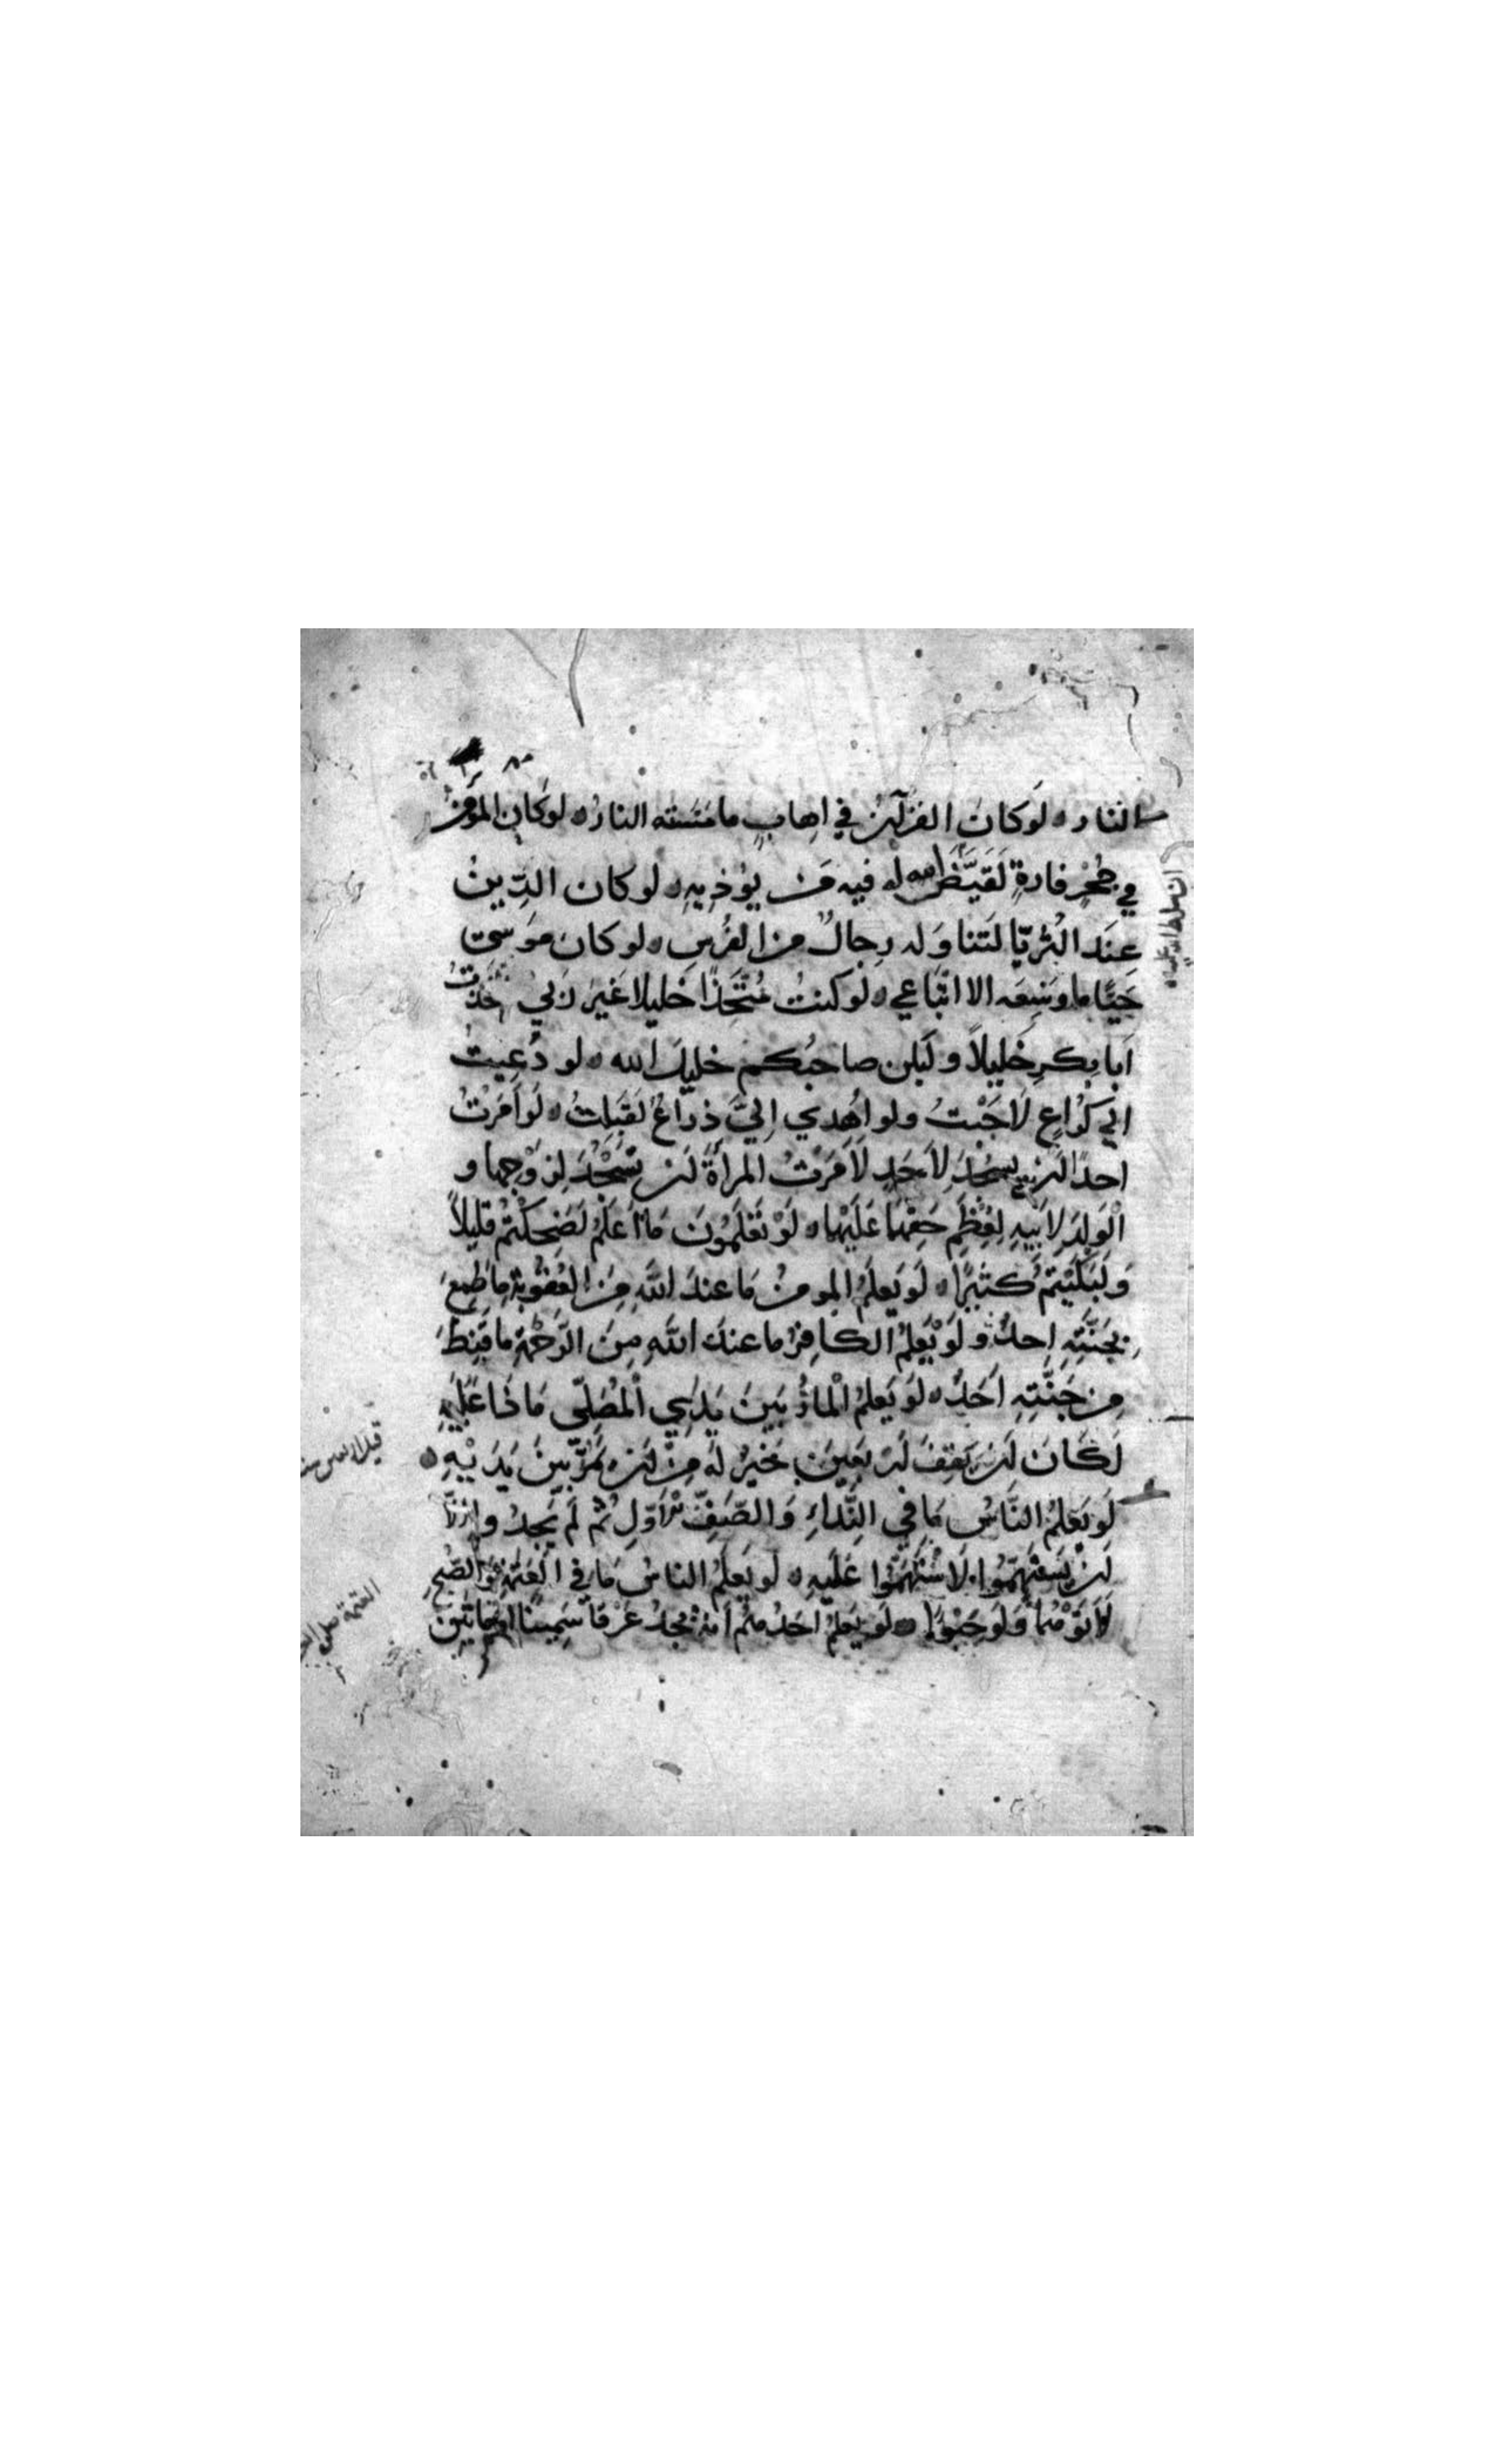 النار ۝ لَوكانَ القرآنُ في اِهابٍ ما مَسَّته النارُ ۝ لوكان المؤمنُ
في جُحْرِ فارةٍ لَقَيَّضَ الله له فيه مَن يوذِيهِ ۝ لو كان الدِّينُ
عِندَ الثُّريّا لَتَناوَله رِجالٌ من الفُرسِ ۝ لو كان موسى
حَيًّا ما وَسِعَه الا اتّباعي ۝ لَو كنتُ مُتَّخِذًا خَليلا غيرَ رَبي
اَبا بكرٍ خَليلاً وَلَكن صاحبُكم خليلُ الله ۝ لو دُعِيتُ
الى كُراعٍ لَاَجَبْتُ ولو اُهدي اِليَّ ذراعٌ لَقَبِلتُ ۝ لَو اَمَرْتُ
احدًا اَن يسجُدَ لِاَحَدٍ لَاَمَرْتُ المراَةَ اَن تَسْجُدَ لِزَوْجِها و
الْوَلدَ لِاَبيهِ لِعِظَمِ حَقِهما عَلَيْها ۝ لَوْ تَعْلَمُونَ مَا اَعلَمُ لَضَحِكتُم قليلاً
وَلَبَكَيْتُم كثيرًا ۝ لَو يَعلَمُ المومنُ مَا عندَ اللَّهِ مِنَ العُقُوبةِ ما طَمِعَ
بِجَنَّتِهِ احدٌ و لَوْ يَعْلَمُ الكافِرُ ما عندَ اللَّهِ مِنَ الرَّحْمَةِ ما قَنِطَ
مِن جَنَّتِهِ اَحَدٌ ۝ لَو يَعلمُ الْمارُّ بَينَ يَدَيِ الْمُصَلِّى مَا ذا عَلَيهِ
لَكَانَ اَن يَقِفَ اَربَعينَ خَيرٌ لَهُ مِنْ اَن يَمُرَّ بينَ يَدَيْهِ ۝
لَو يَعلَمُ النَّاسُ مَا في النِّداءِ وَالصَّفِّ الْاَوّلِ ثُم لَم يَجِدُوا اِلاَّ
اَن يَستَهِمُوا لَاسْتَهَمُوا عَلَيهِ ۝ لَو يَعلَمُ الناسُ مَا في العَتَمةِ وَالصُّبحِ
لَاَتَوْهُما وَلَو حَبْوًا ۝ لَو يَعلمُ احَدُ منهم اَنهُ يَجدُ عَرْقًا سَمِينًا او مِرماتَين